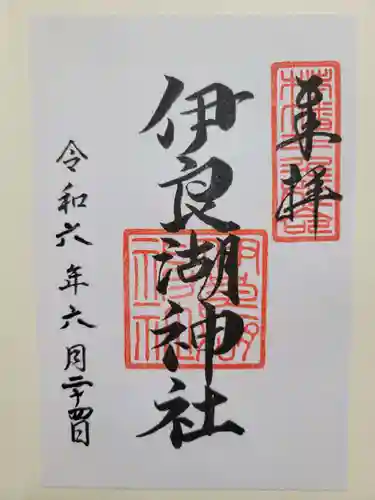 奉拝
伊良湖神社
令和六年六月二十四日